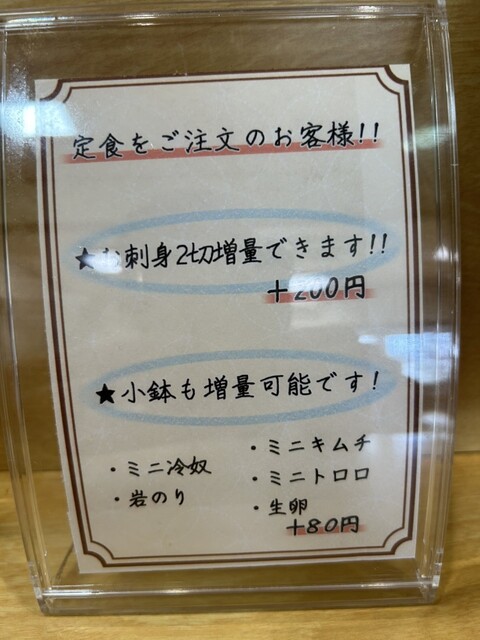 定食をご注文のお客様!!
★お刺身2切増量できます!!
+200円
★小鉢も増量可能です!
・ミニ冷奴
・岩のり
・ミニキムチ
・ミニトロロ
・生卵
+80円